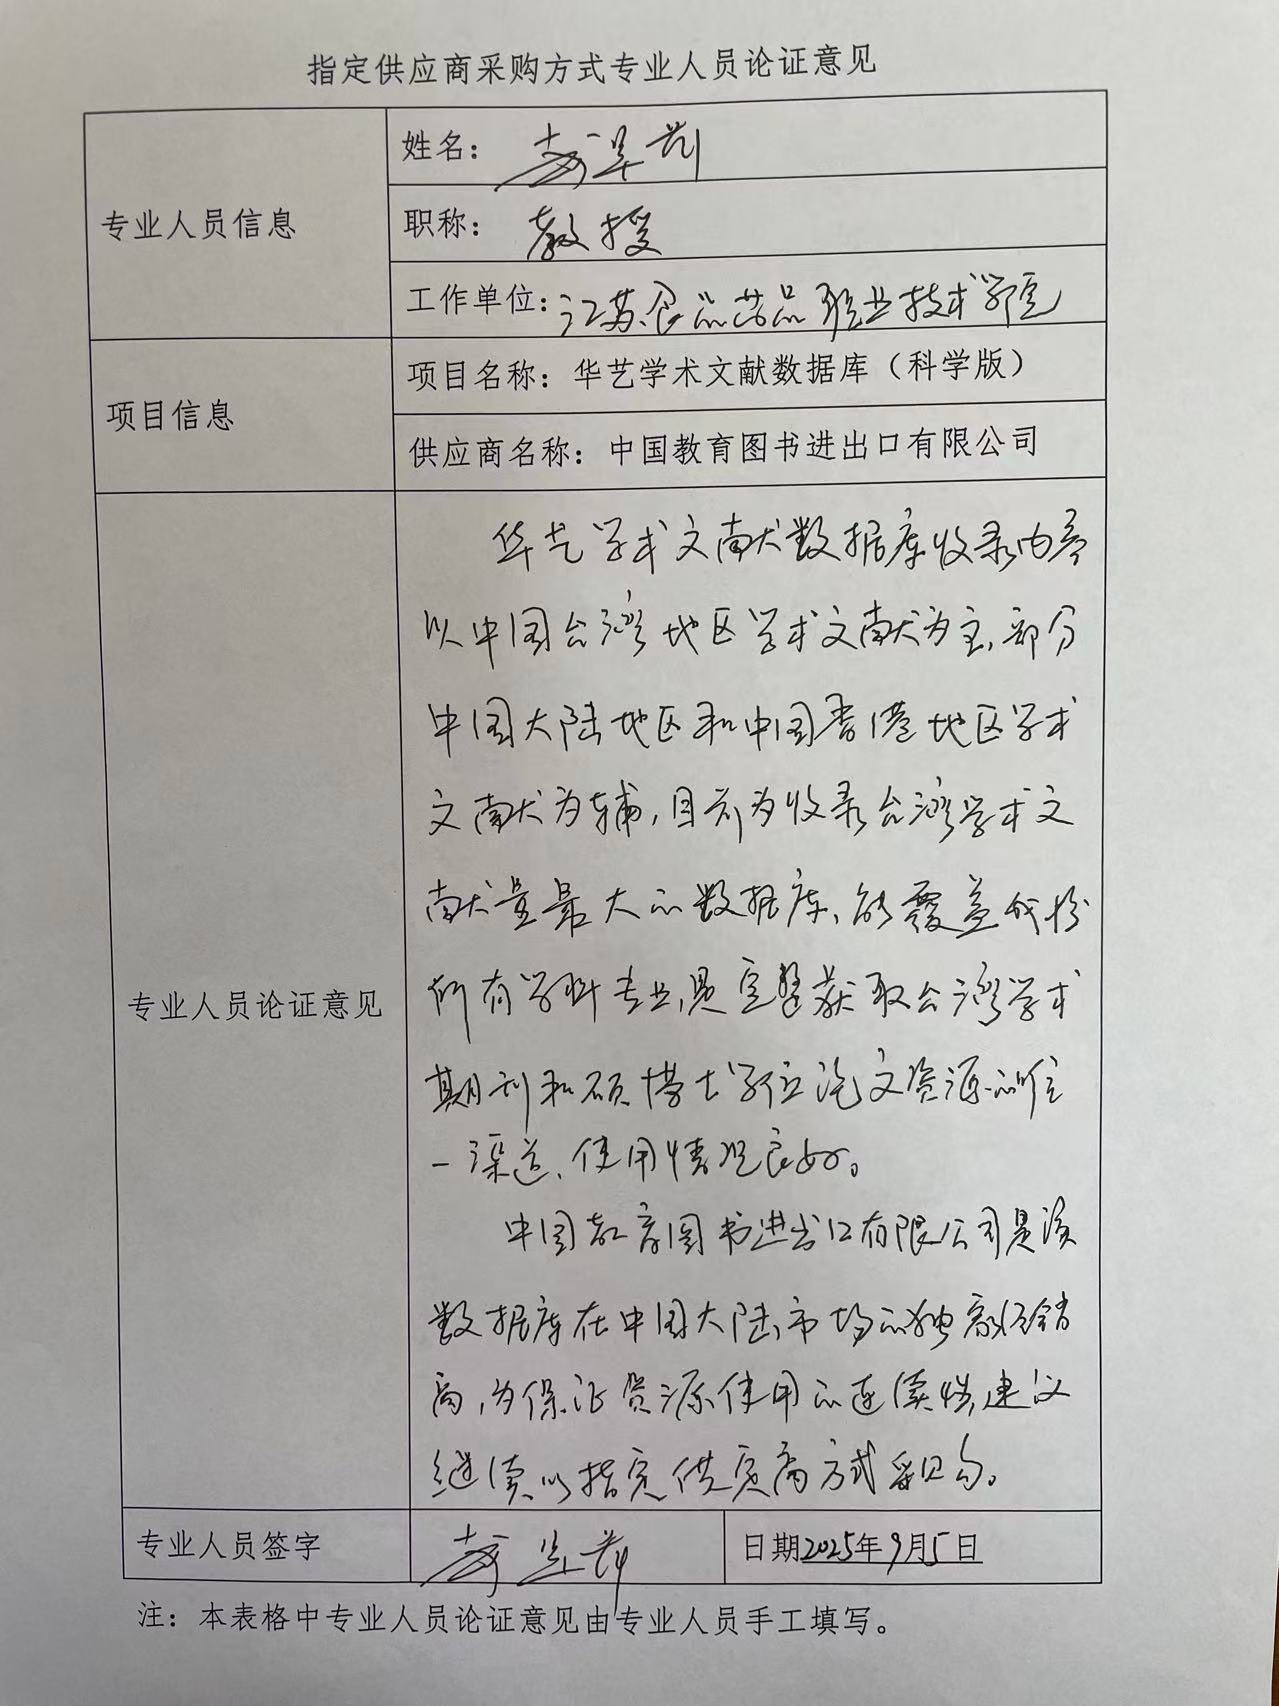 指定供应商采购方式专业人员论证意见
专业人员信息
姓名：
职称：教授
工作单位：江苏食品药品职业技术学院
项目信息
项目名称：华艺学术文献数据库（科学版）
供应商名称：中国教育图书进出口有限公司
专业人员论证意见
华艺学术文献数据库收录内容
以中国台湾地区学术文献为主，部分
中国大陆地区和中国香港地区学术
文献为辅，目前为收录台湾学术文
献量最大的数据库，能覆盖我校
所有学科专业，是完整获取台湾学术
期刊和硕博士学位论文资源的唯
一渠道，使用情况良好。
中国教育图书进出口有限公司是该
数据库在中国大陆市场的独家经销
商，为保证资源使用的连续性，建议
继续以指定供应商方式采购。
专业人员签字
日期2025年9月5日
注：本表格中专业人员论证意见由专业人员手工填写。